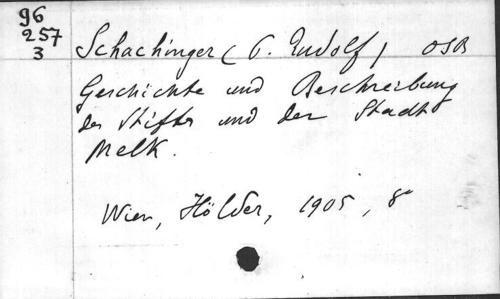 96
257
3
Schachinger (P. Rudolf) OSB
Geschichte und Beschreibung
des Stiftes und der Stadt
Melk.
Wien, Hölder, 1905, 8°